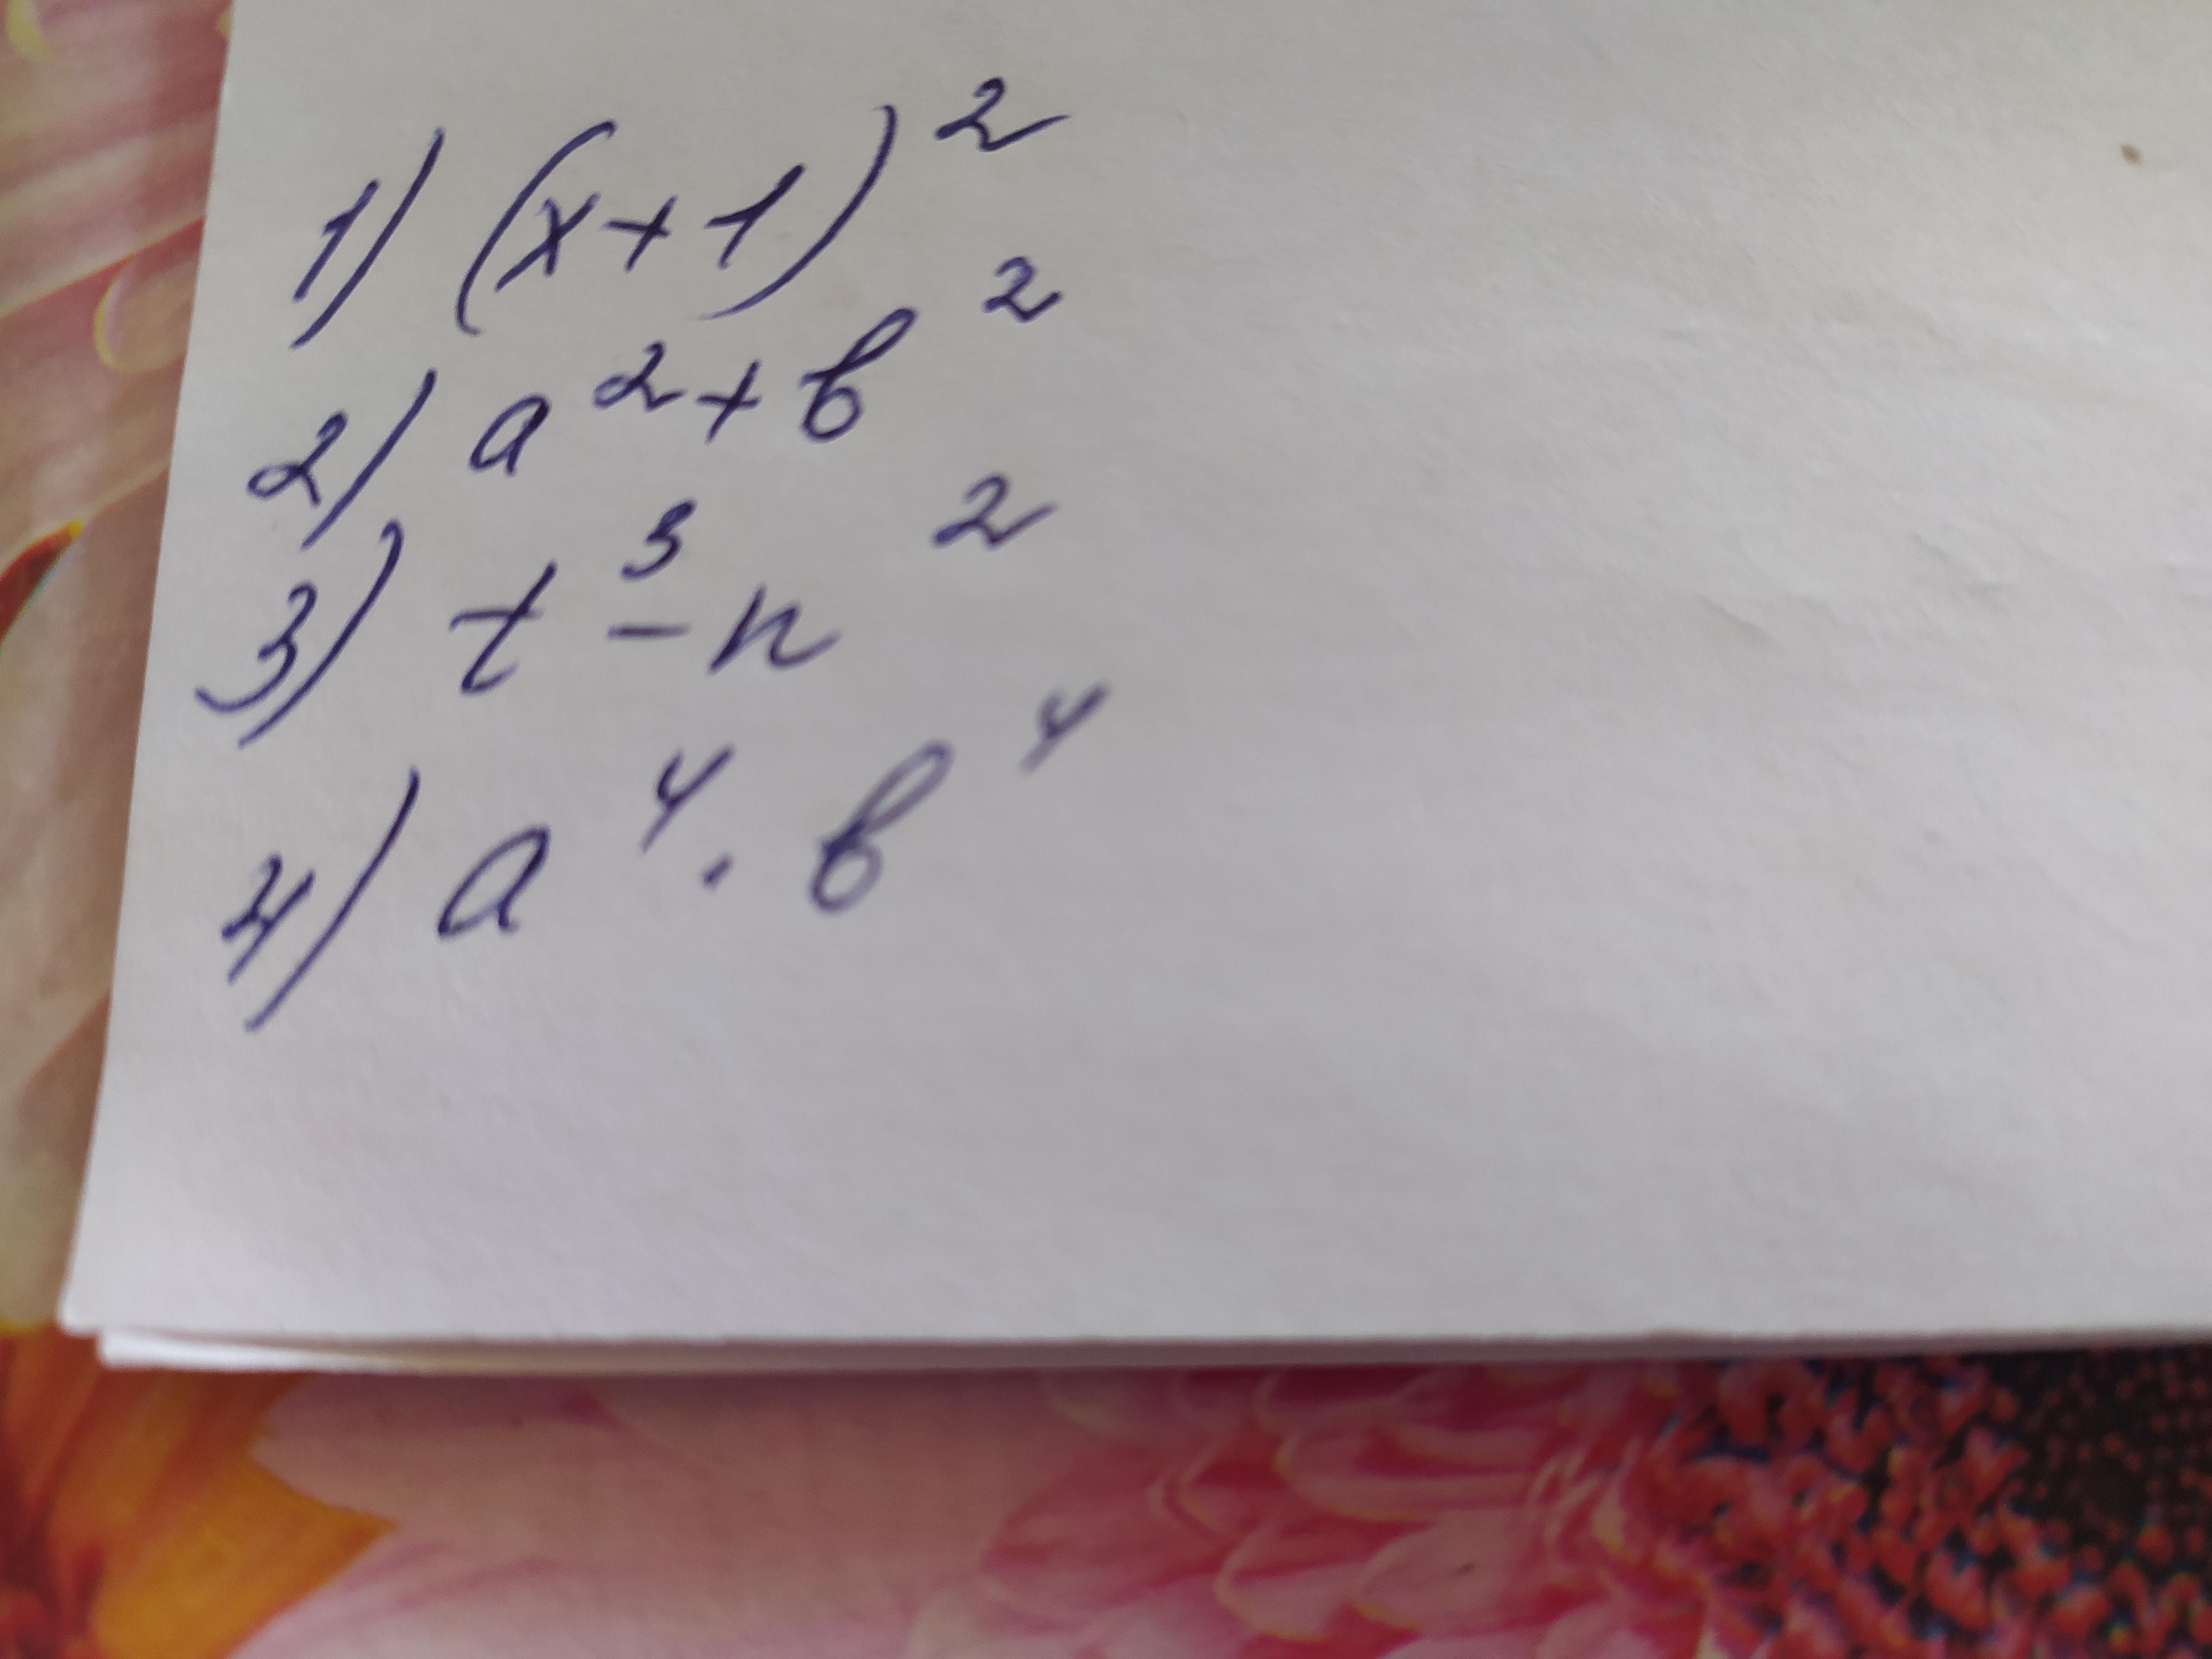 1) (x+1)²
2) a²+b²
3) t³-n²
4) a⁴·b⁴